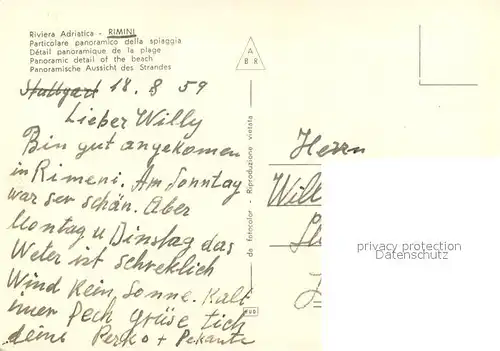 Riviera Adriatica - RIMINI
Particolare panoramico della spiaggia
Détail panoramique de la plage
Panoramic detail of the beach
Panoramische Aussicht des Strandes
Stuttgart 18. 8 59
Lieber Willy
Bin gut angekomen
in Rimeni. Am Sonntag
war ser schön. Aber
Montag u Dinstag das
Weter ist schreklich
Wind kein, Sonne. Kalt
imer Pech grüse tich
deine Perko + Pekante
A
8 8 R
da fotocolor - Riproduzione vietata
Herrn
Will
privacy protection
Datenschutz